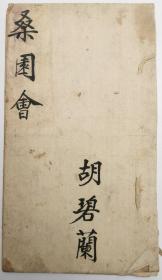 桑園會
胡碧蘭